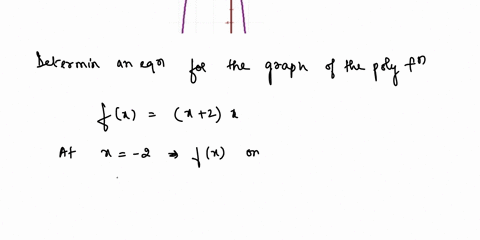 Determin an eqn for the graph of the poly fn
f(x) = (x+2) x
At x = -2 ⇒ f(x) on